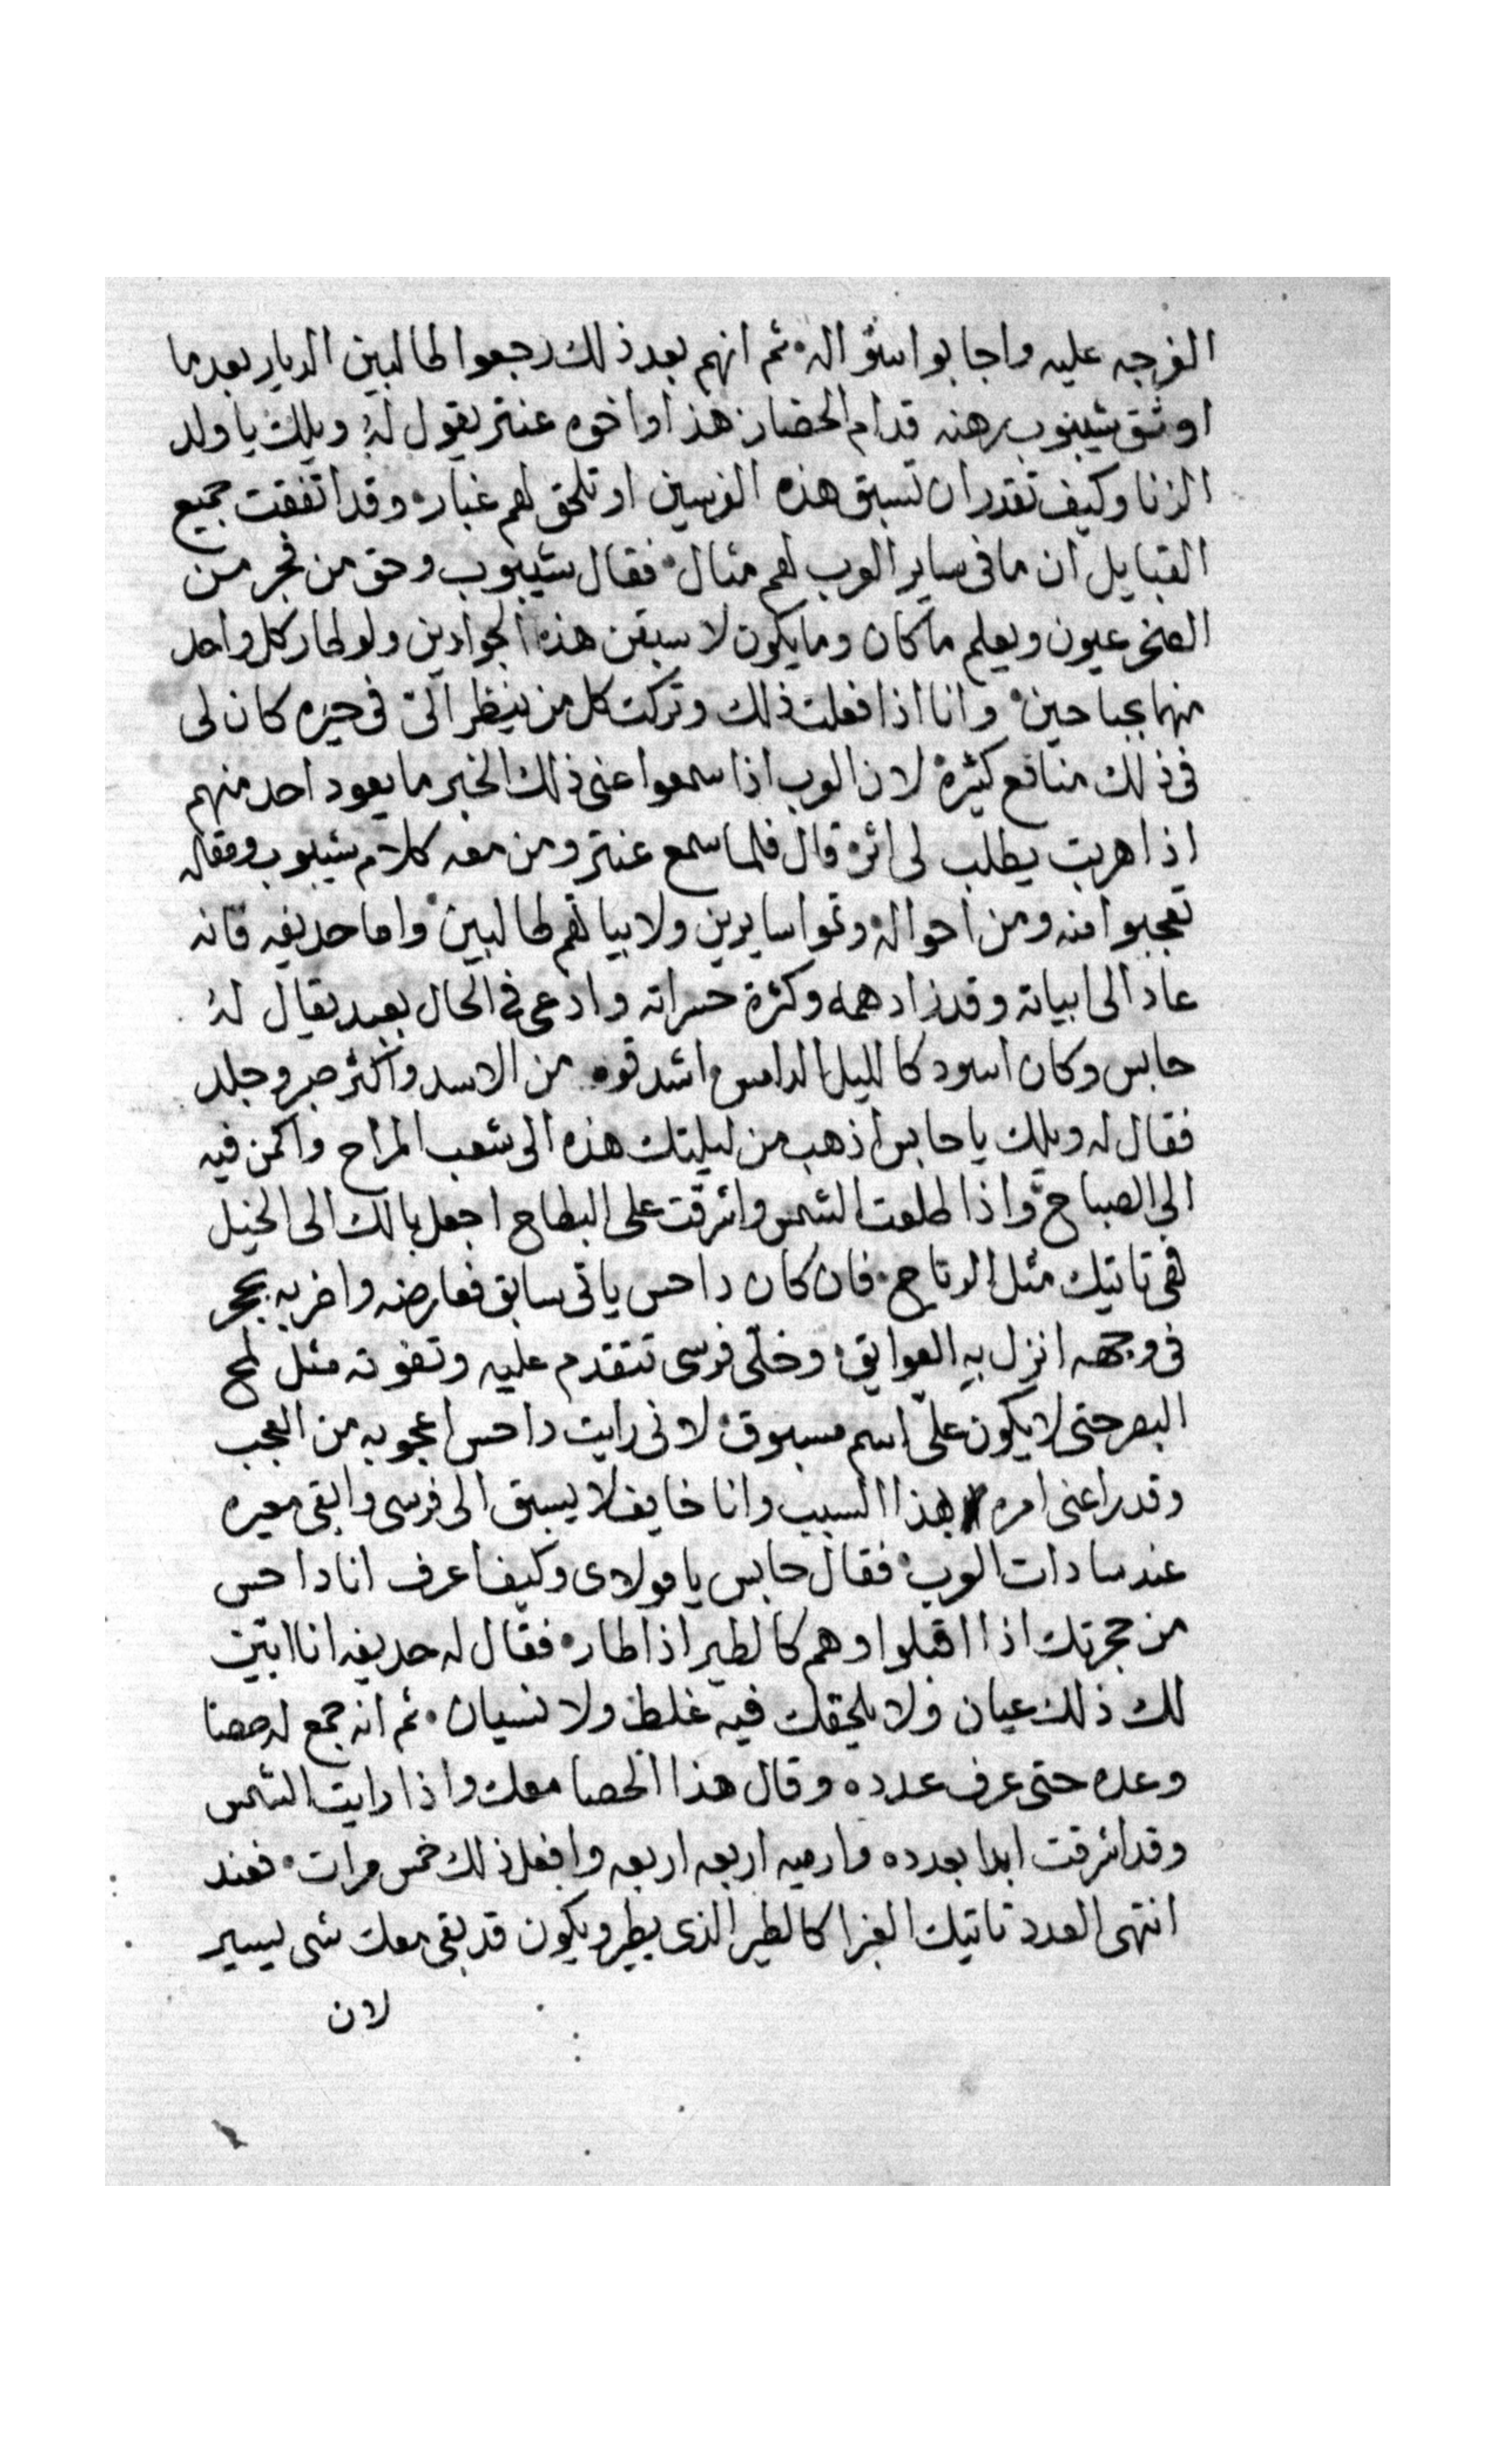 الفرجه عليه واجابوا سؤاله ثم انهم بعد ذلك رجعوا طالبين الديار بعدما
اوثق شيبوب رهنه قدام الحضار هذا واخوه عنتر يقول له ويلك يا ولد
الزنا وكيف تقدر ان تسبق هذه الفرسين او تلحق لهم غبار وقد اتفقت جميع
القبايل ان ما فى ساير العرب لهم مثال فقال شيبوب وحق من فجر من
الصخر عيون ويعلم ما كان وما يكون لاسبقن هذه الجوادين ولو طار كل واحد
منهما بجناحين وانا اذا فعلت ذلك وتركت كل من ينظر الىّ فى حيره كان لى
فى ذلك منافع كثيرة لان العرب اذا سمعوا عنى ذلك الخبر ما يعود احد منهم
اذا هربت يطلب لى اثر قال فلما سمع عنتر ومن معه كلام شيبوب ومقاله
تعجبوا منه ومن احواله وتموا سايرين ولابياتهم طالبين واما حديفه فانه
عاد الى ابياته وقد زاد همه وكثرة حسراته وادعى فى الحال بعبد يقال له
حابس وكان اسود كالليل الدامس واشد قوه من الاسد واكثر صبر وجلد
فقال له ويلك يا حابس اذهب من ليلتك هذه الى شعب المراح واكمن فيه
الى الصباح واذا طلعت الشمس واشرقت على البطاح اجعل بالك الى الخيل
فهى تاتيك مثل الرياح فان كان داحس ياتى سابق فعارضه واضربه بحجر
فى وجهه انزل به العوايق وخلّى فرسى تتقدم عليه وتفوته مثل لمح
البصر حتى لا يكون علىّ اسم مسبوق لانى رايت داحس اعجوبه من العجب
وقد راعنى امره بهذا السبب وانا خايف لا يسبق الى فرسى وابقى معيره
عند سادات العرب فقال حابس يا مولاى وكيف اعرف انا داحس
من حجرتك اذا اقبلوا وهم كالطير اذا طار فقال له حديفه انا ابين
لك ذلك عيان ولا يلحقك فيه غلط ولا نسيان ثم انه جمع له حصا
وعده حتى عرف عدده وقال هذا الحصا معك واذا رايت الشمس
وقد اشرقت ابدا بعدده وارميه اربعه اربعه وافعل ذلك خمس مرات فعند
انتهى العدد تاتيك الغبرا كالطير الذى يطير ويكون قد بقى معك شى يسير
لان